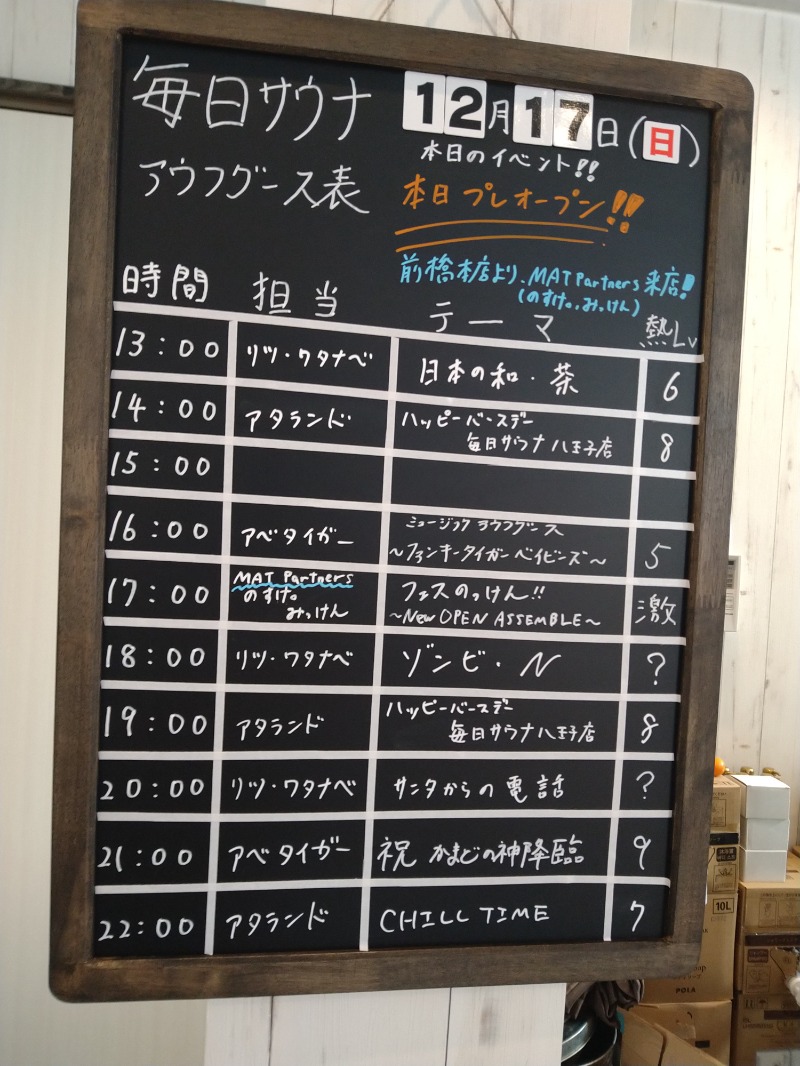 毎日サウナ 12月17日(日)
アウフグース表
本日のイベント!!
本日 プレオープン!!
前橋本店より、MAT Partners 来店!
(のすけ。、みっけん)
時間 担当 テーマ 熱Lv
13:00 リツ・ワタナベ 日本の和・茶 6
14:00 アタランド ハッピーバースデー
毎日サウナ 八王子店 8
15:00
16:00 アベタイガー ミュージックアウフグース
〜ファンキータイガーベイビーズ〜 5
17:00 MAT Partners
のすけ。
みっけん
フェスのっけん!!
〜New OPEN ASSEMBLE〜 激
18:00 リツ・ワタナベ ゾンビ・N ?
19:00 アタランド ハッピーバースデー
毎日サウナ 八王子店 8
20:00 リツ・ワタナベ サンタからの電話 ?
21:00 アベタイガー 祝 かまどの神降臨 9
22:00 アタランド CHILL TIME 7
10L
POLA